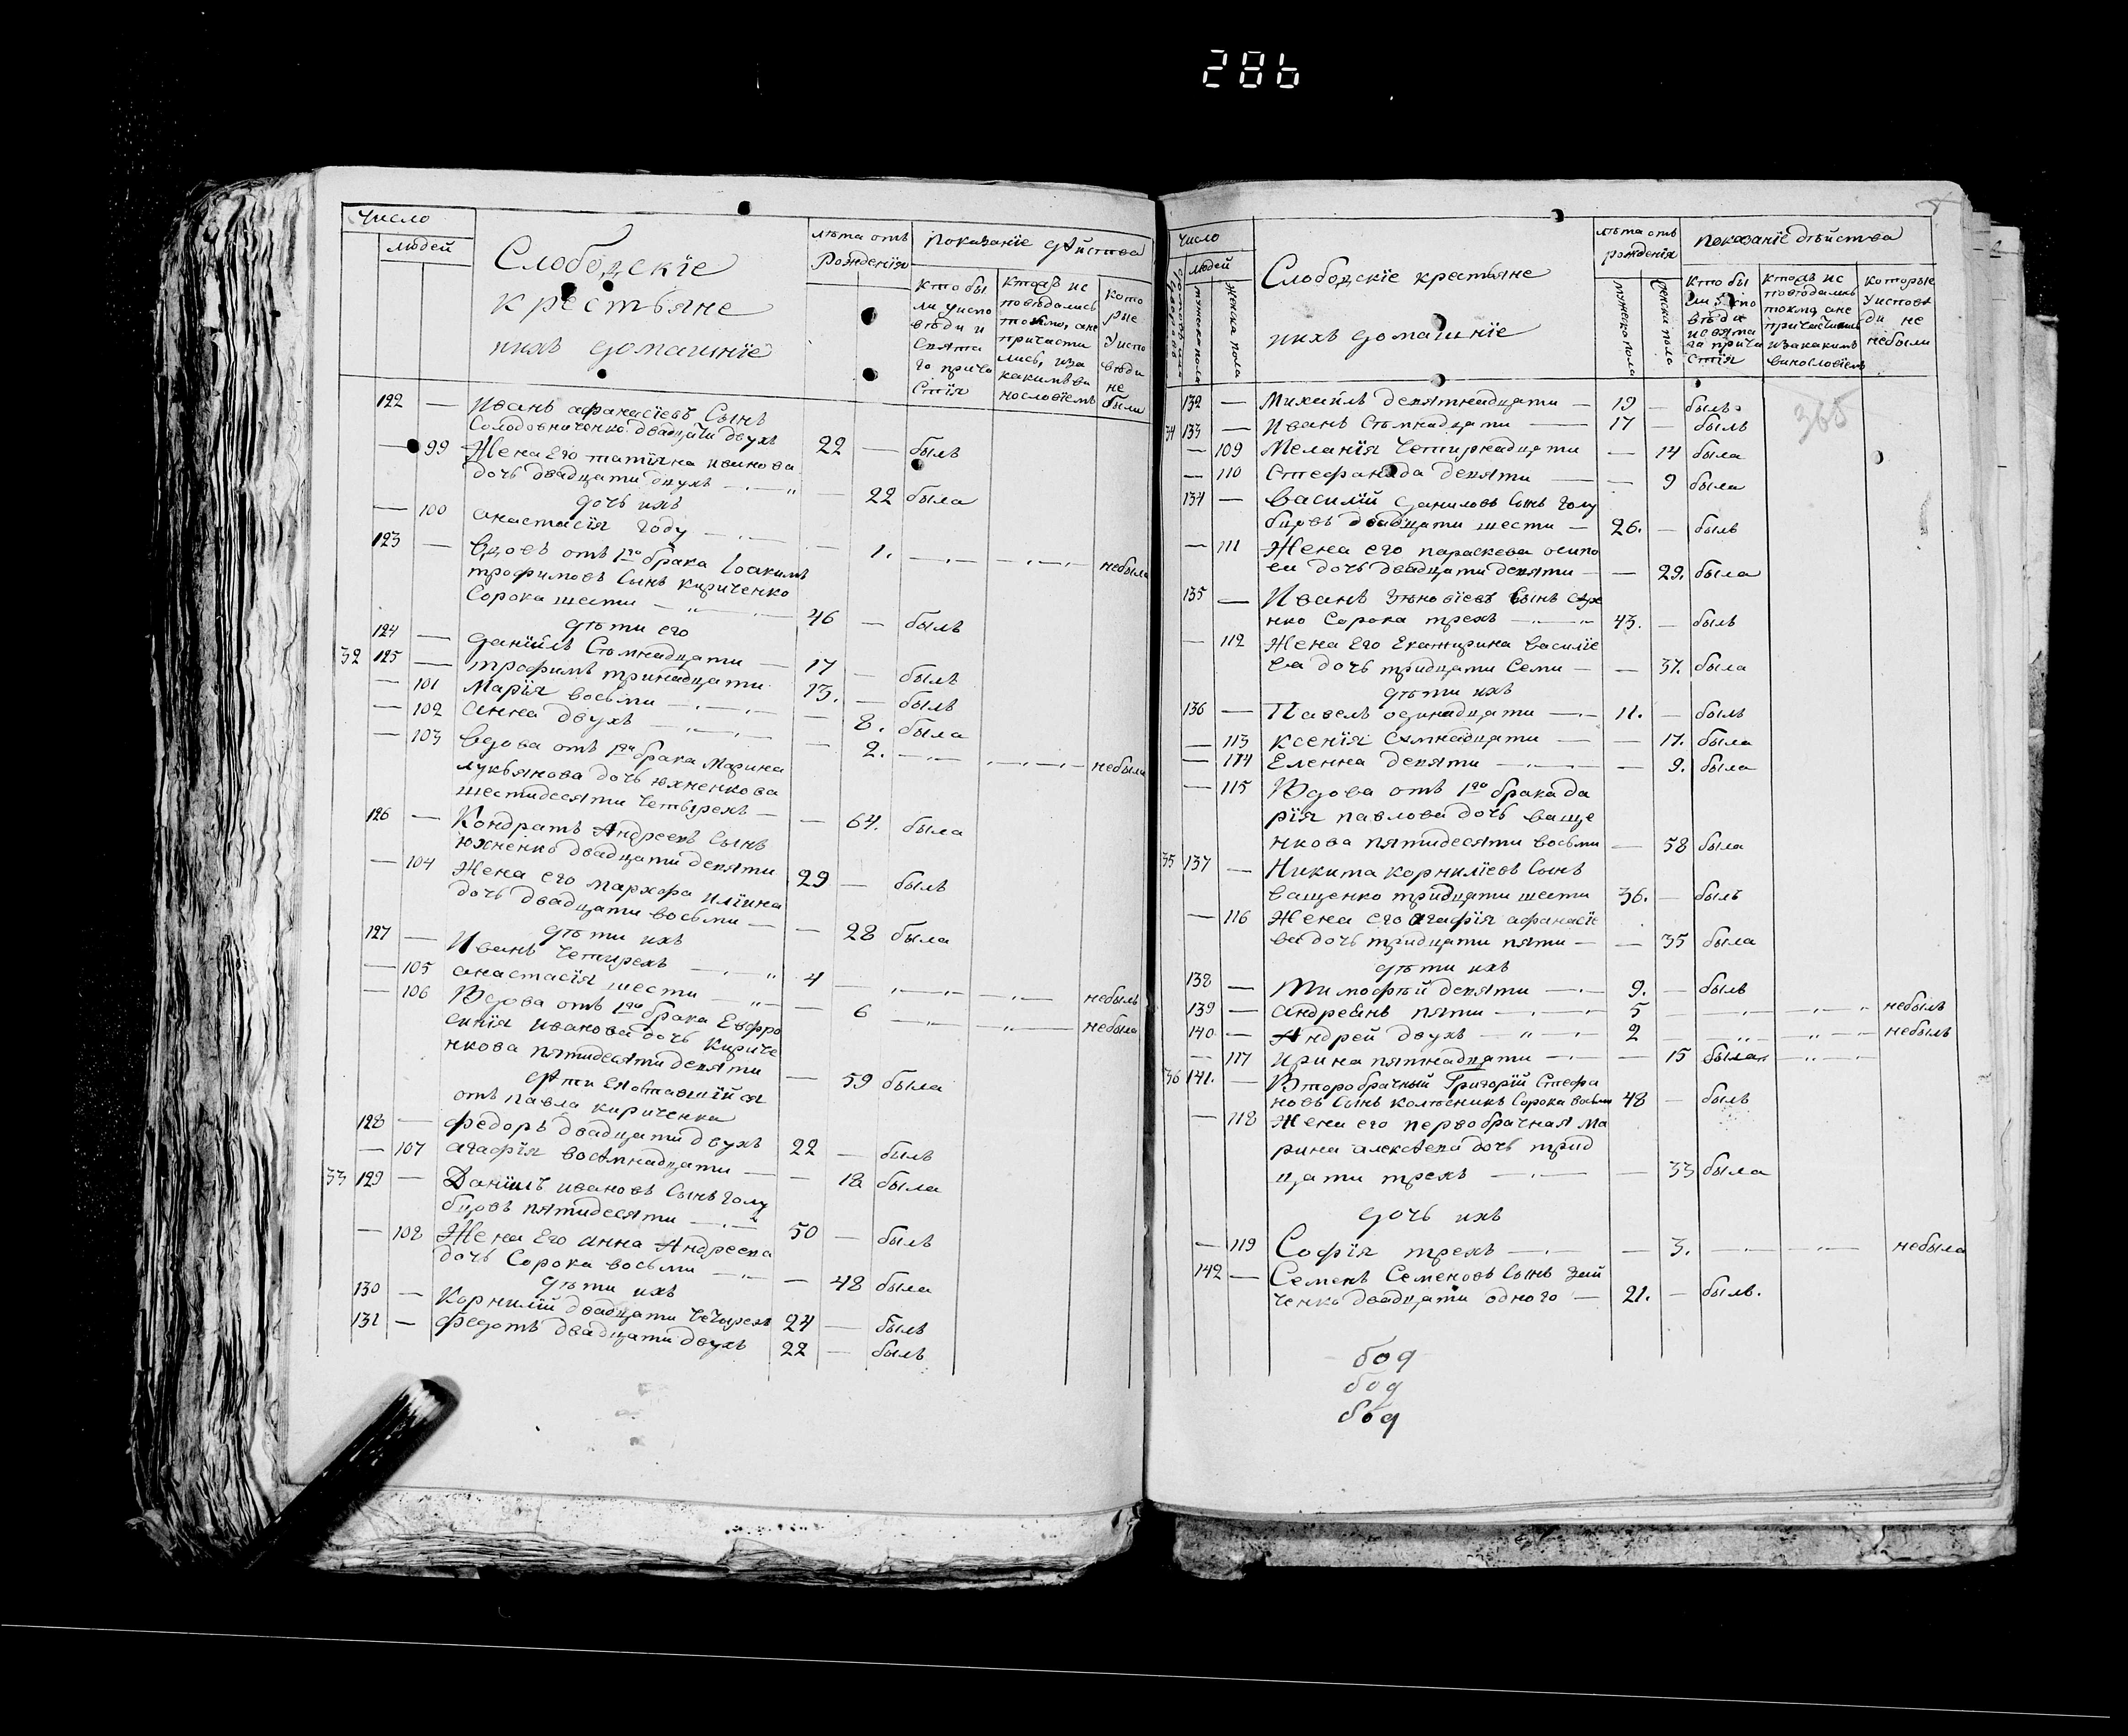 286
Число
людей
Слободскїе
крестьяне
ихъ домашнїе
лѣта отъ
рожденїя
показанїе дѣйства
Кто бы
ли у испо
вѣди и
свята
го прича
стїя
Кто исъ
повѣдались
токмо, а не
причасти
лись, и за
какимъ ви
нословїемъ
Кото
рые
у испо
вѣди
не
были
122 — Иванъ афанасїевъ Сынъ
Солодовниченко двадцати двухъ 22 — былъ
— 99 Жена его татїяна иванова
дочь двадцати двухъ — 22 была
дочь ихъ
— 100 анастасїя году — 1. небыла
123 — Вдовъ отъ 1го брака Iоакимъ
трофимовъ Сынъ кириченко
Сорока шести — 46 — былъ
дѣти его
124 — данїилъ Семнадцати — 17 — былъ
32 125 — трофимъ тринадцати 13. — былъ
— 101 Марїя восьми — 8. была
— 102 анна двухъ — 2. небыла
— 103 Вдова отъ 1го брака Марина
лукьянова дочь юхненкова
шестидесяти четырехъ — — 64. была
126 — Кондратъ Андреевъ Сынъ
юхненко двадцати девяти 29 — былъ
— 104 Жена его марфа илїина
дочь двадцати восьми — — 28 была
дѣти ихъ
127 — Иванъ четирехъ — 4 — небылъ
— 105 анастасїя шести — 6 небыла
— 106 Вдова отъ 1го брака Евфро
синїя иванова дочь кириче
нкова пятидесяти девяти — 59 была
дѣти ея оставшїйся
отъ павла кириченка
128 — федоръ двадцати двухъ 22 — былъ
— 107 агафїя восѣмнадцати — — 18 была
33 129 — Данїилъ ивановъ Сынъ голу
бцовъ пятидесяти — 50 — былъ
— 108 Жена Его анна Андреева
дочь Сорока восьми — — 48 была
дѣти ихъ
130 — Корнилїй двадцати четырехъ 24 — былъ
131 — федотъ двадцати двухъ 22 — былъ
Число
людей
мужеска пола
женска пола
Слободскїе крестьяне
ихъ домашнїе
лѣта отъ
рожденїя
мужеска пола
женска пола
показанїе дѣйства
Кто бы
ли у испо
вѣди
и свята
го прича
стїя
Кто исъ
повѣдались
токмо, а не
причастились
и за какимъ
винословїемъ
которые
у исповѣ
ди не
небыли
365
132 — Михаилъ девятнадцати — 19 — былъ
34 133 — Иванъ Семнадцати — 17 — былъ
— 109 Меланїя Четирнадцати — 14 была
— 110 Стефанида девяти — 9 была
134 — Василїй даниловъ Сынъ голу
бцовъ двадцати шести — 26. — былъ
— 111 Жена его параскева осипо
ва дочь двадцати девяти — — 29. была
135 — Иванъ Зѣновїевъ Сынъ
нко Сорока трехъ — 43. — былъ
— 112 Жена Его Екатирина василїе
ва дочь тридцати Семи — — 37. была
дѣти ихъ
136 — Павелъ одинадцати — 11. — былъ
— 113 ксенїя Семнадцати — — 17. была
— 114 Еленна девяти — — 9. была
— 115 Вдова отъ 1го брака да
рїя павлова дочь ваще
нкова пятидесяти восьми — 58 была
35 137 — Никита корнилїевъ Сынъ
ващенко тридцати шести 36. — былъ
— 116 Жена его агафїя афанасїе
ва дочь тридцати пяти — — 35 была
дѣти ихъ
138 — Тимофѣй девяти — 9. — былъ
139 — андреянъ пяти — 5 небылъ
140 — Андрей двухъ — 2 небылъ
— 117 Ирина пятнадцати — — 15 была
36 141. — Второбрачный Григорїй Стефа
новъ Сынъ колѣсникъ Сорока восьми 48 — былъ
— 118 Жена его первобрачная Ма
рина алексѣева дочь трид
цати трехъ — — 33 была
дочь ихъ
— 119 Софїя трехъ — — 3. небыла
142 — Семенъ Семеновъ Сынъ Зай
ченко двадцати одного — 21. — былъ.
бод
бод
бод